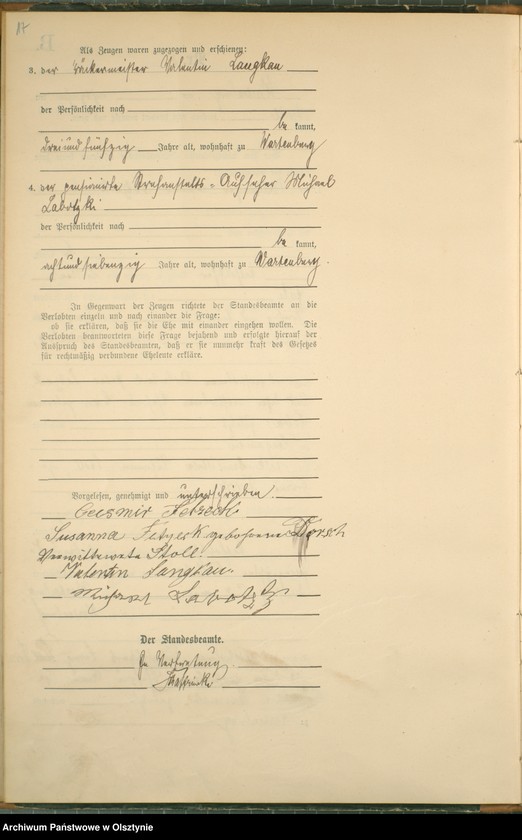 Als Zeugen waren zugezogen und erschienen:
3. der Bäckermeister Valentin Langkau
der Persönlichkeit nach
be kannt,
dreiundfünfzig Jahre alt, wohnhaft zu Wartenburg
4. der pensionirte Strafanstalts-Aufseher Michael
Labotzki
der Persönlichkeit nach
be kannt,
achtundsiebenzig Jahre alt, wohnhaft zu Wartenburg.
In Gegenwart der Zeugen richtete der Standesbeamte an die
Verlobten einzeln und nach einander die Frage:
ob sie erklären, daß sie die Ehe mit einander eingehen wollen. Die
Verlobten beantworteten diese Frage bejahend und erfolgte hierauf der
Ausspruch des Standesbeamten, daß er sie nunmehr kraft des Gesetzes
für rechtmäßig verbundene Eheleute erkläre.
Vorgelesen, genehmigt und unterschrieben.
Susanna geborene Dorsch
Verwittwete Stoll.
Valentin Langkau.
Michael Labotzki
Der Standesbeamte.
In Vertretung
Archiwum Państwowe w Olsztynie